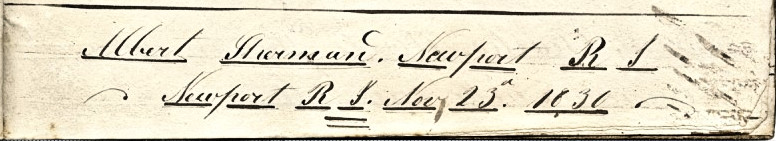 Albert Sherman. Newport R I
Newport R I. Nov 23d. 1830